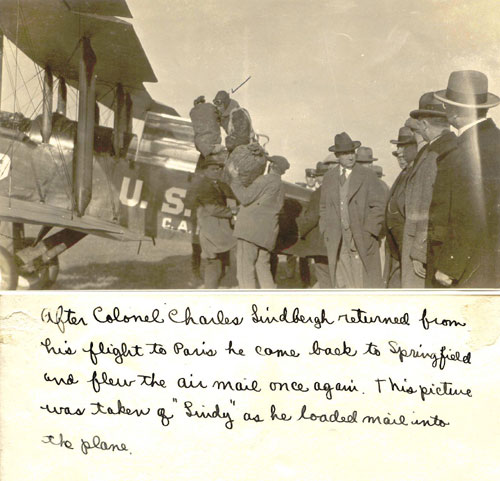 U.S.
C.A.
After Colonel Charles Lindbergh returned from
his flight to Paris he came back to Springfield
and flew the air mail once again. This picture
was taken of "Lindy" as he loaded mail into
the plane.